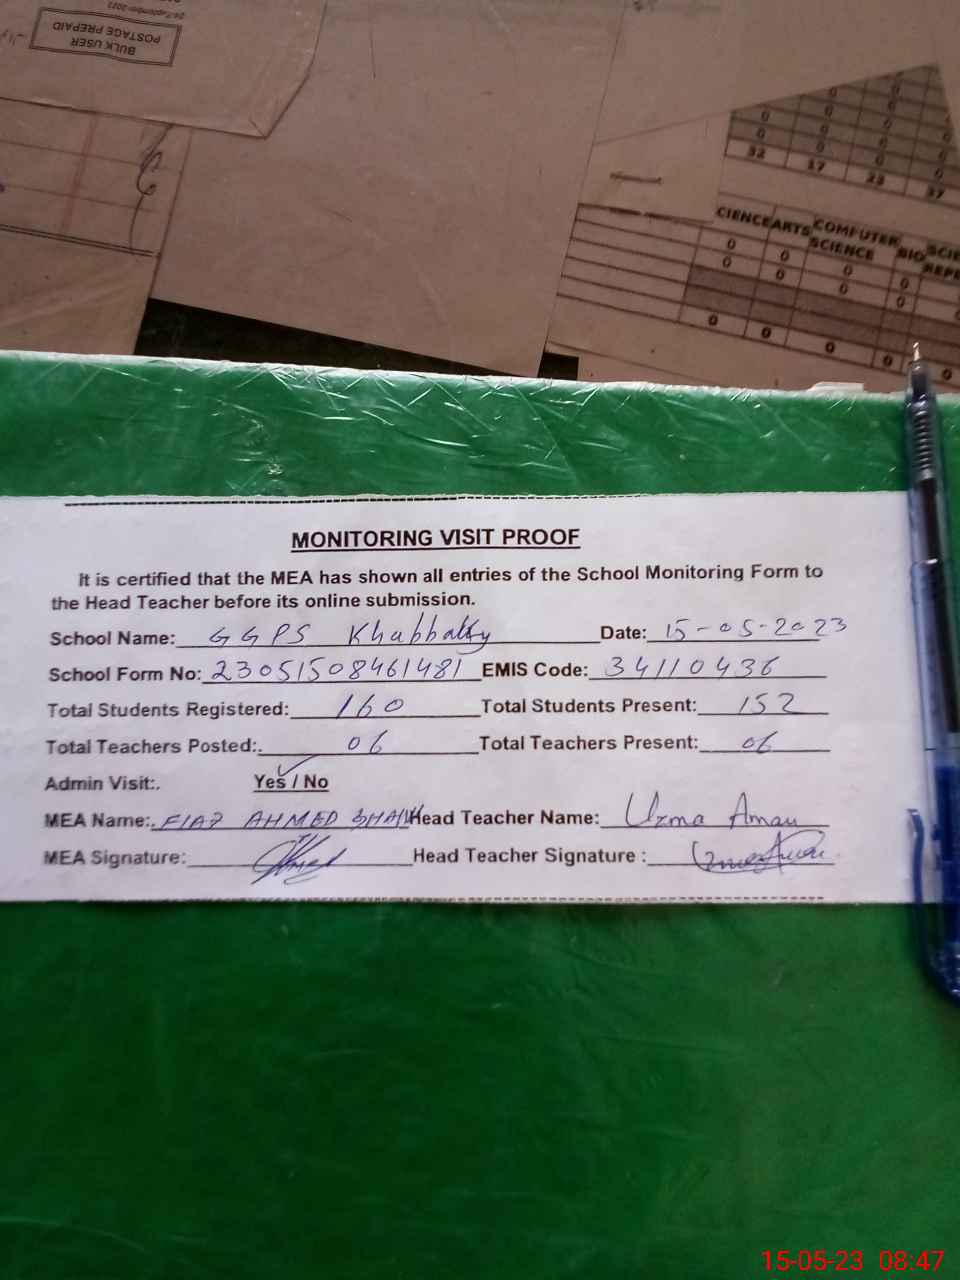 24 September 2021
BULK USER
POSTAGE PREPAID
0 0
0 0 0
0 0 0
32 17 23 37
CIENCE ARTS COMPUTER SCIENCE BIO
0 0 0 0
0 0 0 0
0 0 0 0 0
MONITORING VISIT PROOF
It is certified that the MEA has shown all entries of the School Monitoring Form to
the Head Teacher before its online submission.
School Name: GGPS Khabbatty Date: 15-05-2023
School Form No: 23051508461481 EMIS Code: 34110436
Total Students Registered: 160 Total Students Present: 152
Total Teachers Posted: 06 Total Teachers Present: 06
Admin Visit:. Yes / No
MEA Name:. FIAZ AHMED Head Teacher Name: Uzma Aman
MEA Signature: Head Teacher Signature :
15-05-23 08:47